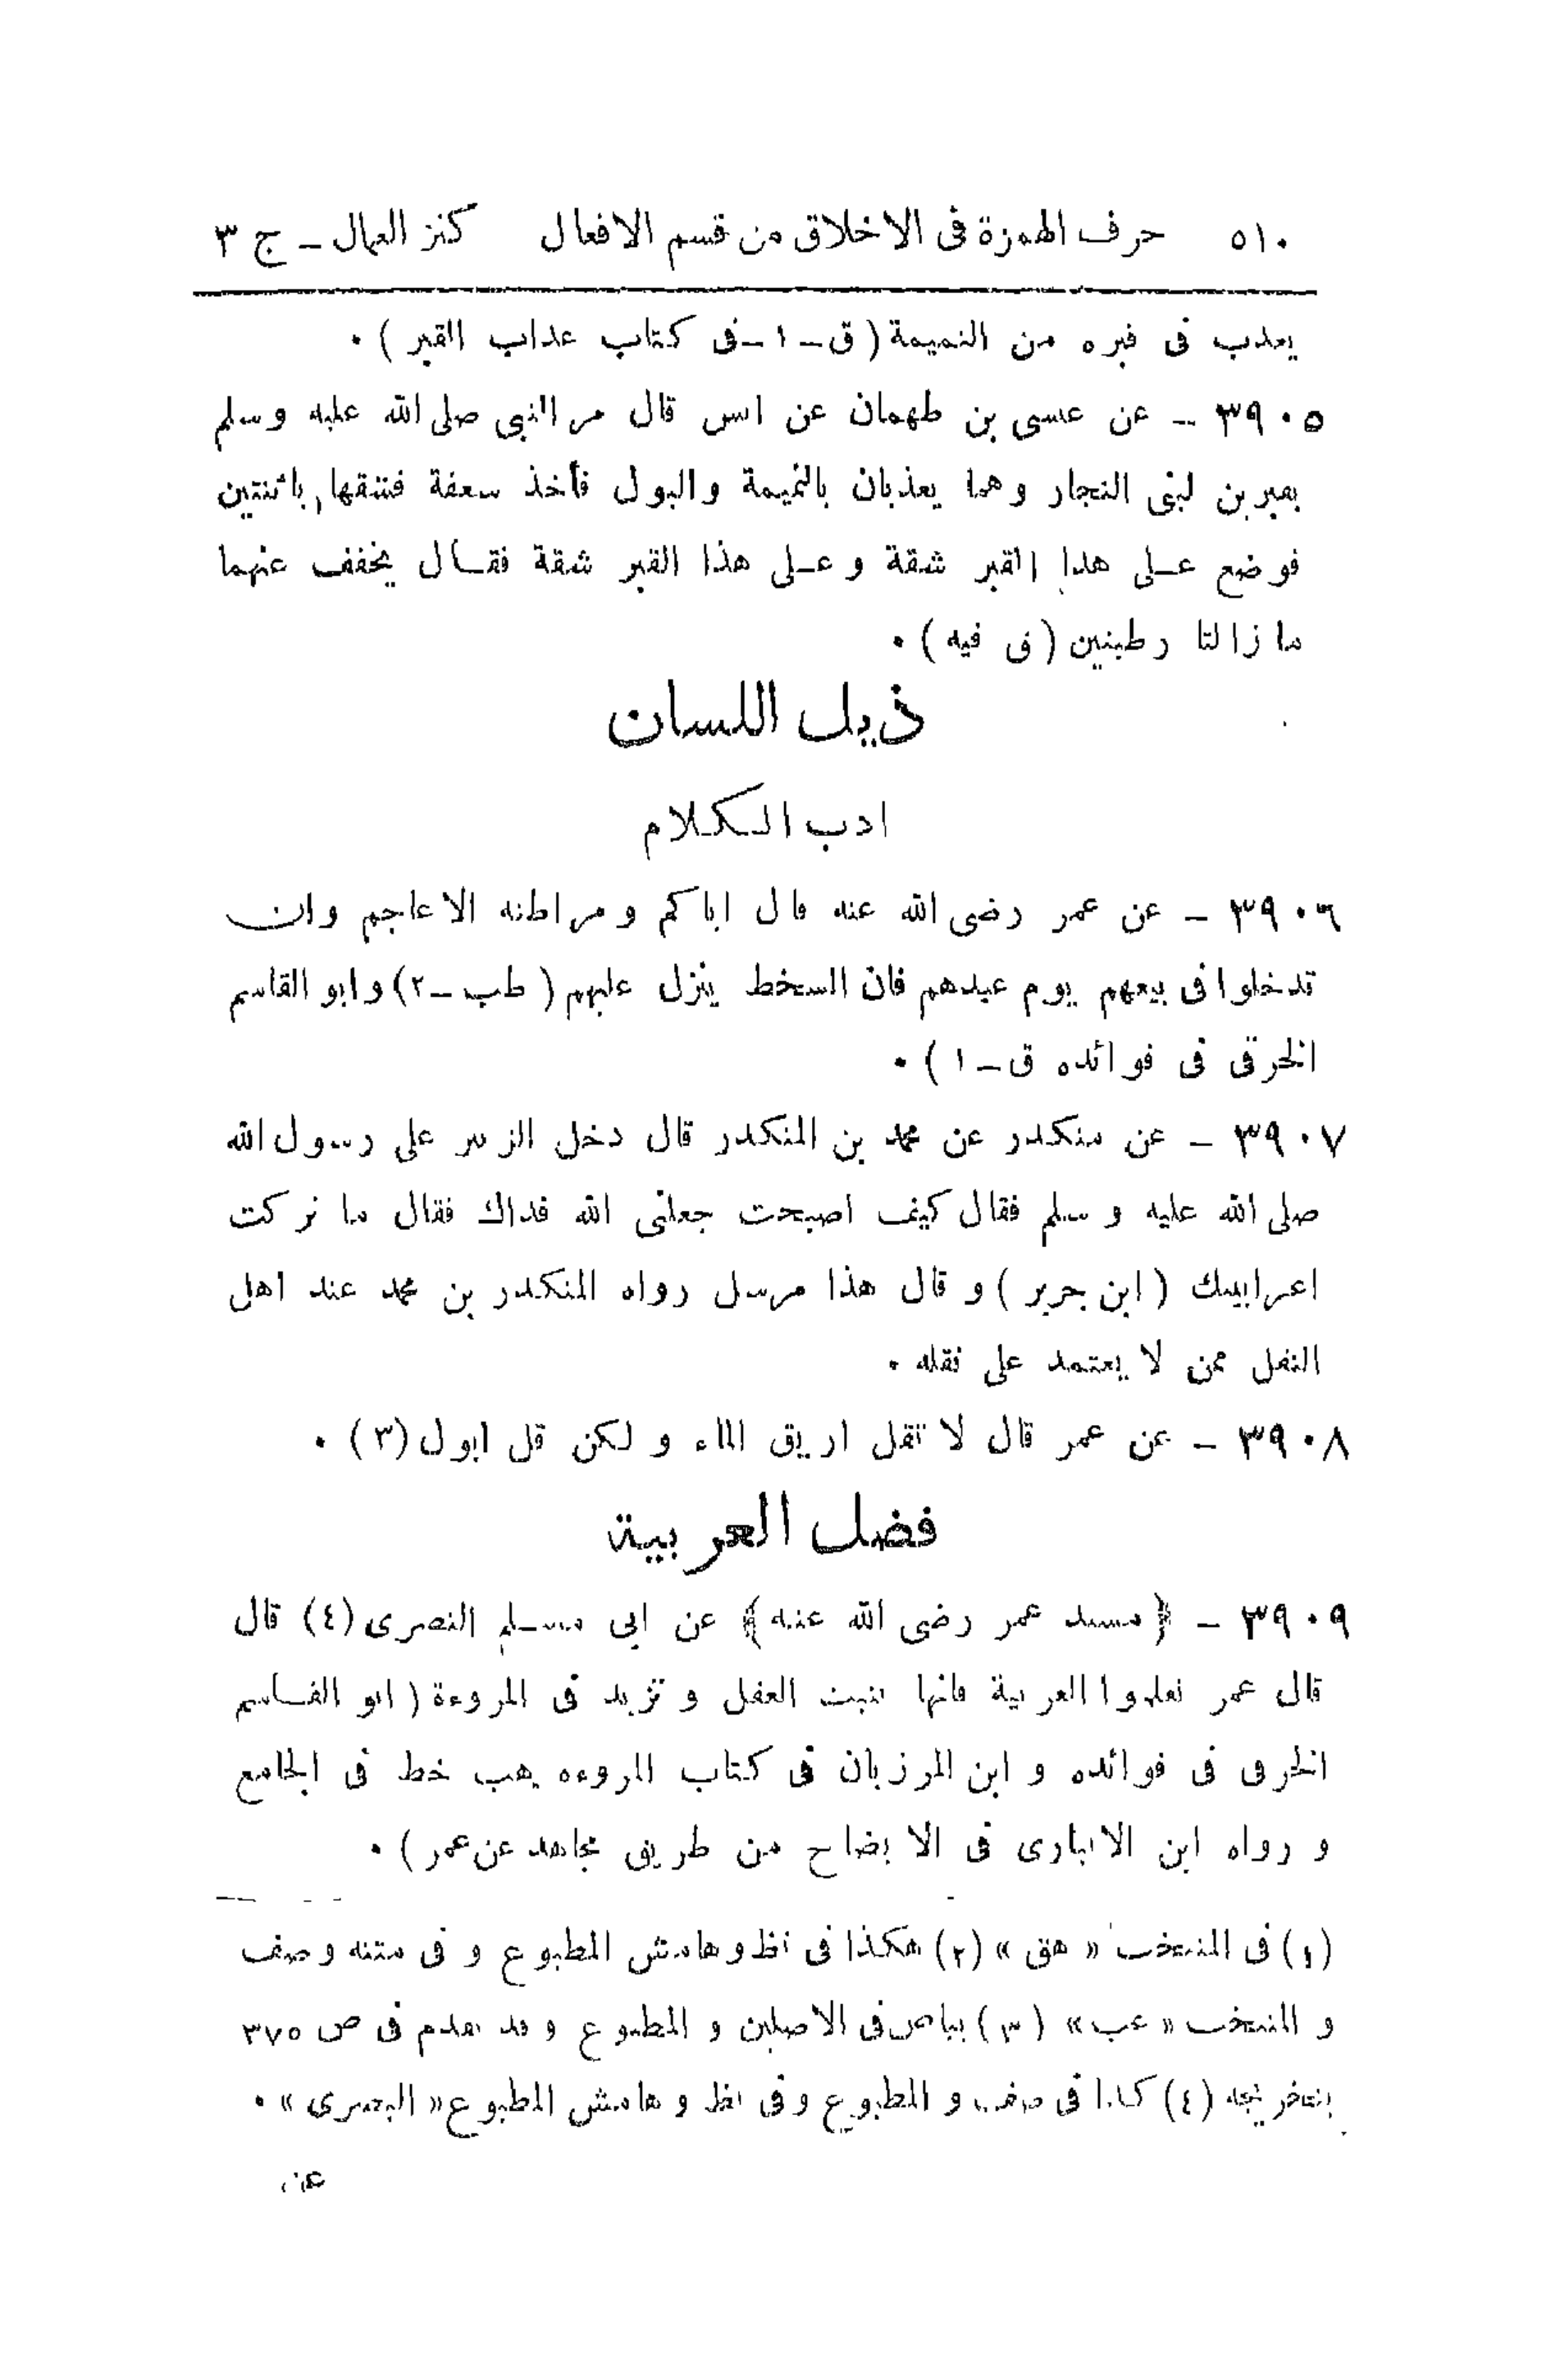 ٥١٠ حرف الهمزة فى الاخلاق من قسم الافعال كنز العمال ـ ج ٣
يعذب فى قبره من النميمة ( ق ـ ١ ـ فى كتاب عذاب القبر ) ٠
٣٩٠٥ ـ عن عيسى بن طهمان عن انس قال مر النبى صلى الله عليه وسلم
بقبرين لبنى النجار وهما يعذبان بالنميمة والبول فأخذ سعفة فشقها باثنتين
فوضع عـلى هذا القبر شقة وعـلى هذا القبر شقة فقـال يخفف عنهما
ما زالتا رطبتين ( فى فيه ) ٠
ذيل اللسان
ادب الـكلام
٣٩٠٦ ـ عن عمر رضى الله عنه قال اياكم ومراطنة الاعاجم وان
تدخلوا فى بيعهم يوم عيدهم فان السخط ينزل عليهم ( طب ـ ٢) وابو القاسم
الخرقى فى فوائده ق ـ ١ ) ٠
٣٩٠٧ ـ عن منكدر عن محمد بن المنكدر قال دخل الزبير على رسول الله
صلى الله عليه وسلم فقال كيف اصبحت جعلنى الله فداك فقال ما تركت
اعرابيتك ( ابن جرير ) و قال هذا مرسل رواه المنكدر بن محمد عند اهل
النقل ممن لا يعتمد على نقله ٠
٣٩٠٨ ـ عن عمر قال لا تقل اريق الماء و لكن قل ابول (٣) ٠
فضل العربية
٣٩٠٩ ـ ﴿مسند عمر رضى الله عنه﴾ عن ابى مسـلم النصرى (٤) قال
قال عمر تعلموا العربية فانها تثبت العقل و تزيد فى المروءة ( ابو القـاسم
الخرقى فى فوائده و ابن المرزبان فى كتاب المروءه هب خط فى الجامع
و رواه ابن الانبارى فى الايضاح من طريق مجاهد عن عمر ) ٠
(١) فى المنتخب « هق » (٢) هكذا فى نظ وهامش المطبوع و فى متنه وصف
و المنتخب « عب » (٣) بياض فى الاصلين و المطبوع و قد تقدم فى ص ٣٧٥
بتخريجه (٤) كذا فى صف و المطبوع وفى نظ و هامش المطبوع « البصرى » ٠
عن